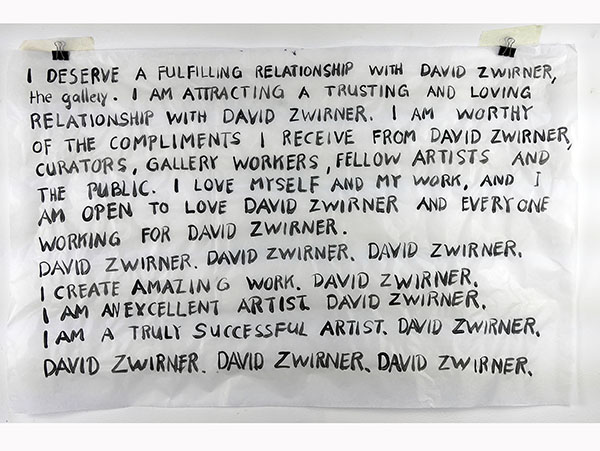 I DESERVE A FULFILLING RELATIONSHIP WITH DAVID ZWIRNER,
the gallery. I AM ATTRACTING A TRUSTING AND LOVING
RELATIONSHIP WITH DAVID ZWIRNER. I AM WORTHY
OF THE COMPLIMENTS I RECEIVE FROM DAVID ZWIRNER,
CURATORS, GALLERY WORKERS, FELLOW ARTISTS AND
THE PUBLIC. I LOVE MYSELF AND MY WORK, AND I
AM OPEN TO LOVE DAVID ZWIRNER AND EVERYONE
WORKING FOR DAVID ZWIRNER.
DAVID ZWIRNER. DAVID ZWIRNER. DAVID ZWIRNER.
I CREATE AMAZING WORK. DAVID ZWIRNER.
I AM AN EXCELLENT ARTIST. DAVID ZWIRNER.
I AM A TRULY SUCCESSFUL ARTIST. DAVID ZWIRNER.
DAVID ZWIRNER. DAVID ZWIRNER. DAVID ZWIRNER.